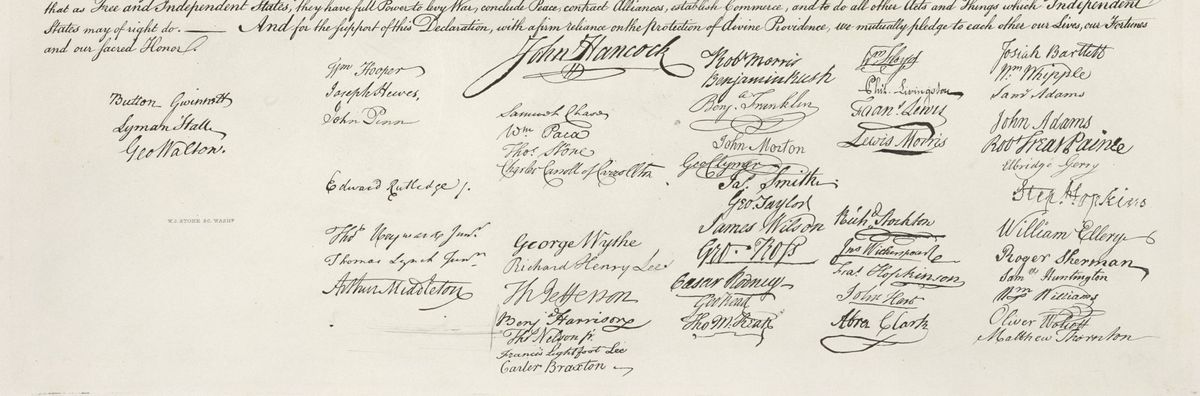 that as Free and Independent States, they have full Power to levy War, conclude Peace, contract Alliances, establish Commerce, and to do all other Acts and Things which Independent
States may of right do. — And for the support of this Declaration, with a firm reliance on the protection of divine Providence, we mutually pledge to each other our Lives, our Fortunes
and our sacred Honor.
Button Gwinnett
Lyman Hall
Geo Walton.
W.J. STONE SC. WASHN
Wm Hooper
Joseph Hewes,
John Penn
Edward Rutledge /.
Thos Heyward Junr.
Thomas Lynch Junr.
Arthur Middleton
John Hancock
Samuel Chase
Wm Paca
Thos Stone
Charles Carroll of Carrollton
George Wythe
Richard Henry Lee
Th Jefferson
Benj Harrison
Thos Nelson jr.
Francis Lightfoot Lee
Carter Braxton
Robt Morris
Benjamin Rush
Benja. Franklin
John Morton
Geo Clymer
Jas. Smith
Geo. Taylor
James Wilson
Geo. Ross
Caesar Rodney
Geo Read
Tho M:Kean
Wm Floyd
Phil. Livingston
Frans. Lewis
Lewis Morris
Richd. Stockton
Jno Witherspoon
Fras. Hopkinson
John Hart
Abra Clark
Josiah Bartlett
Wm. Whipple
Saml Adams
John Adams
Robt Treat Paine
Elbridge Gerry
Step. Hopkins
William Ellery
Roger Sherman
Saml Huntington
Wm Williams
Oliver Wolcott
Matthew Thornton